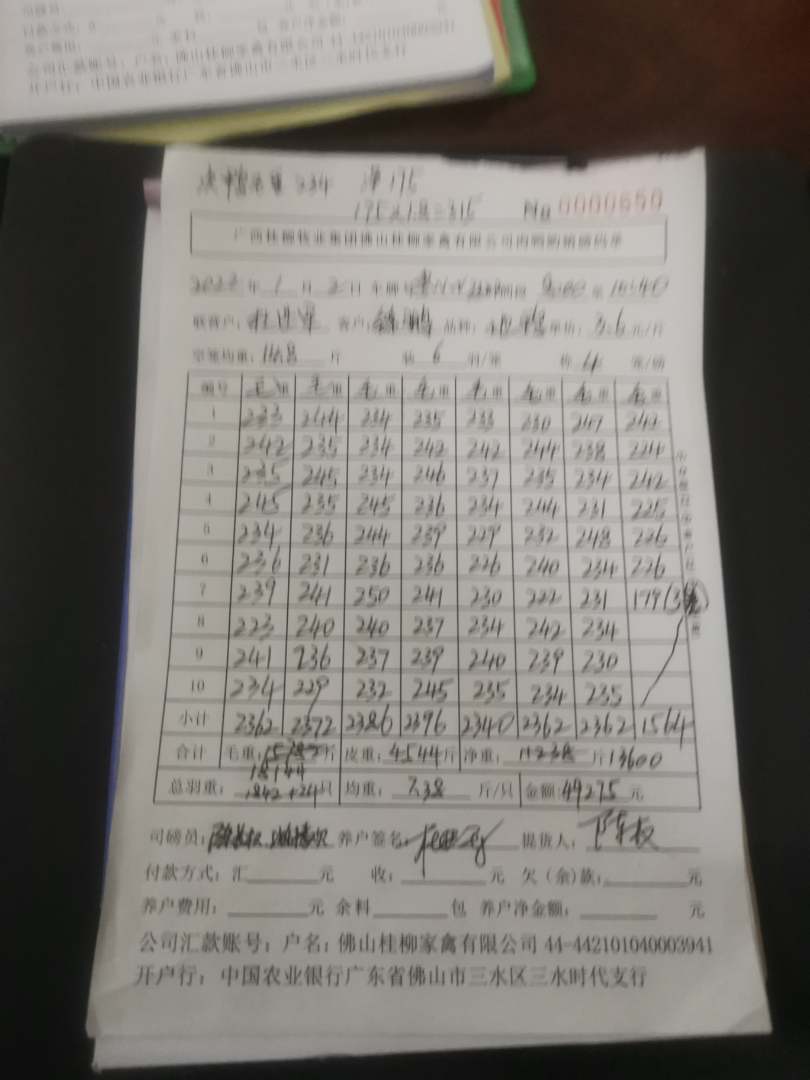 公司汇款账号：户名：佛山桂柳家禽有限公司 44-442101040003941
开户行：中国农业银行广东省佛山市三水区三水时代支行
毛重 234 净175
175×1.8=315 No 0000650
广西桂柳牧业集团佛山桂柳家禽有限公司肉鸭购销磅码单
年 1 月 2 日 车牌
联营户： 客户： 品种： 单价：3.6 元/斤
斤 装 6 羽/笼 称 4 笼/磅
编号 毛重 毛重 毛重 毛重 毛重 毛重 毛重 毛重
1 233 244 234 235 233 230 247 242
2 242 235 234 242 242 244 238 224
3 235 245 234 246 237 235 234 242
4 245 235 245 236 234 244 231 225
5 234 236 244 239 229 232 248 226
6 236 231 236 236 226 240 234 226
7 239 241 250 241 230 222 231 179
8 223 240 240 237 234 242 234
9 241 236 237 239 240 239 230
10 234 229 232 245 235 234 235
小计 2362 2372 2386 2396 2340 2362 2362 1564
合计 毛重： 斤 皮重：4544 斤 净重： 斤 13600
18144
总羽重：1842+24 只 均重：7.38 斤/只 金额：49275 元
司磅员： 养户签名： 提货人：
付款方式：汇 元 收： 元 欠（余）款： 元
养户费用： 元 余料 包 养户净金额： 元
公司汇款账号：户名：佛山桂柳家禽有限公司 44-442101040003941
开户行：中国农业银行广东省佛山市三水区三水时代支行